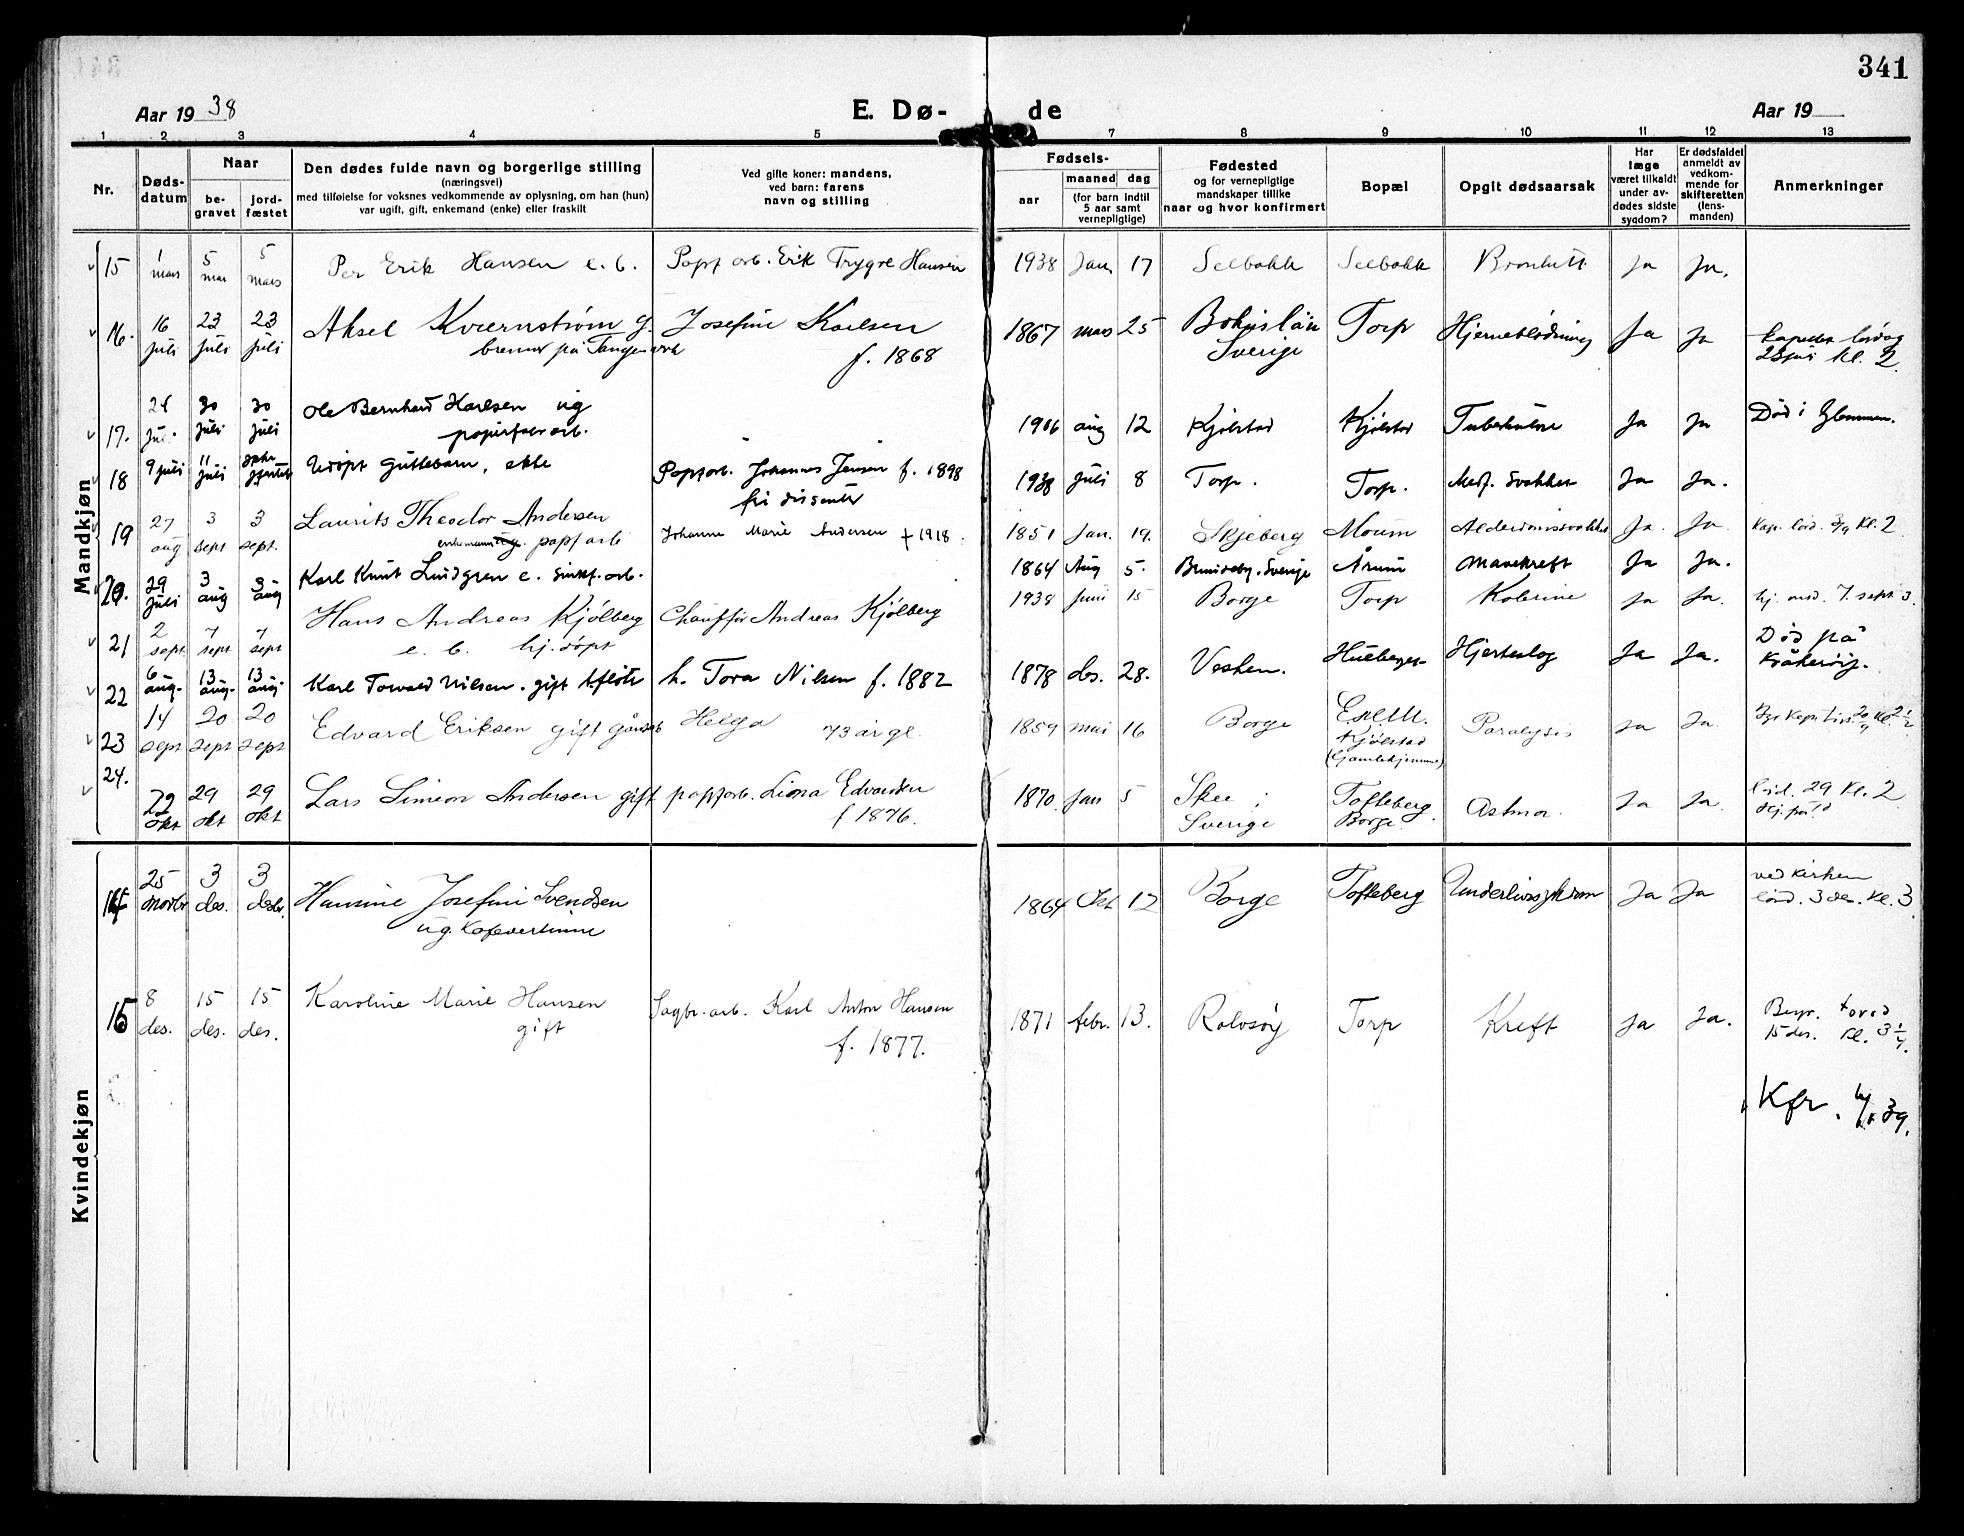 341
Aar 19 38
E. Dø-
de
Aar 19
1 2 3 4 5 7 8 9 10 11 12 13
Nr.
Døds-
datum
Naar
be-
gravet
jord-
fæstet
Den dødes fulde navn og borgerlige stilling
(næringsvei)
med tilføielse for voksnes vedkommende av oplysning, om han (hun)
var ugift, gift, enkemand (enke) eller fraskilt
Ved gifte koner: mandens,
ved barn: farens
navn og stilling
Fødsels-
aar
maaned dag
(for barn indtil
5 aar samt
vernepligtige)
Fødested
og for vernepligtige
mandskaper tillike
naar og hvor konfirmert
Bopæl
Opgit dødsaarsak
Har
læge
været tilkaldt
under av-
dødes sidste
sygdom?
Er dødsfaldet
anmeldt av
vedkom-
mende for
skifteretten
(lens-
manden)
Anmerkninger
Mandkjøn
15 1 mars 5 mars 5 mars Per Erik Hansen e. b. Papf arb. Erik Trygve Hansen 1938 Jan. 17 Selbakk Selbakk Bronkitt Ja Ja.
16. 16 juli 23 juli 23 juli Aksel Kvernstrøm g. Josefine Karlsen 1867 mars 25 Bohuslän Torp Hjerneblødning Ja Ja kapellet lørdag
brenner på f. 1868 Sverige 23 juli kl. 2
17. juli 30 juli 30 juli Ole Bernhard Karlsen ug 1906 aug 12 Kjølstad Kjølstad Tuberkulose Ja Ja Død i Glommen.
papirfabr arb.
18 9 juli 11 juli Udøpt guttebarn, ekte Papf arb. Johannes Jensen f. 1898 1938 juli 8 Torp. Torp. Medf. svakhet Ja Ja.
fri dissenter
19 27 aug 3 sept 3 sept. Laurits Theodor Andersen Johanne Marie Andersen † 1918 1851 Jan. 19. Skjeberg Moum Alderdomssvakhet Ja. Ja. Kap. lørd. 3/9 Kl. 2
enkemann papf arb
20. 29 juli 3 aug 3 aug Karl Knut Lundgren e. 1864 Aug 5. Sverige Årum Mavekreft Ja Ja.
21 2 sept. 7 sept 7 sept Hans Andreas Kjølberg Chauffør Andreas Kjølberg 1938 juni 15 Borge Torp Kolerine Ja Ja. 7. sept 3.
e. b. hj. døpt
22 6 aug. 13 aug. 13 aug. Karl Torvald Nilsen. gift h. Tora Nilsen f. 1882 1878 des. 28. Hjerteslag Ja Ja. Død på
Kråkerøy.
23 14 sept 20 sept 20 sept Edvard Eriksen gift Helga 73 år gl. 1859 mai 16 Borge Kjølstad Paralysis Ja Ja.
(Gamlehjemmet)
24. 22 okt 29 okt 29 okt Lars Simeon Andersen gift papf arb. Edvardsen 1870. Jan 5 Skee i Tofteberg Astma. Ja Ja. lørd. 29 Kl. 2
f 1876. Sverige Borge.
Kvindekjøn
25 novbr 3 des. 3 desbr. Hansine Josefine Svendsen 1864 Okt 12 Borge Tofteberg Ja Ja ved kirken
ug. Kafevertinne lørd. 3 des. kl. 3
15 8 des. 15 des. 15 des. Karoline Marie Hansen Sagbr. arb. Karl Anton Hansen 1871 febr. 13. Rolvsøy Torp Kreft Ja Ja.
gift f. 1877. 15 des. kl. 3 1/4.
Kfr.